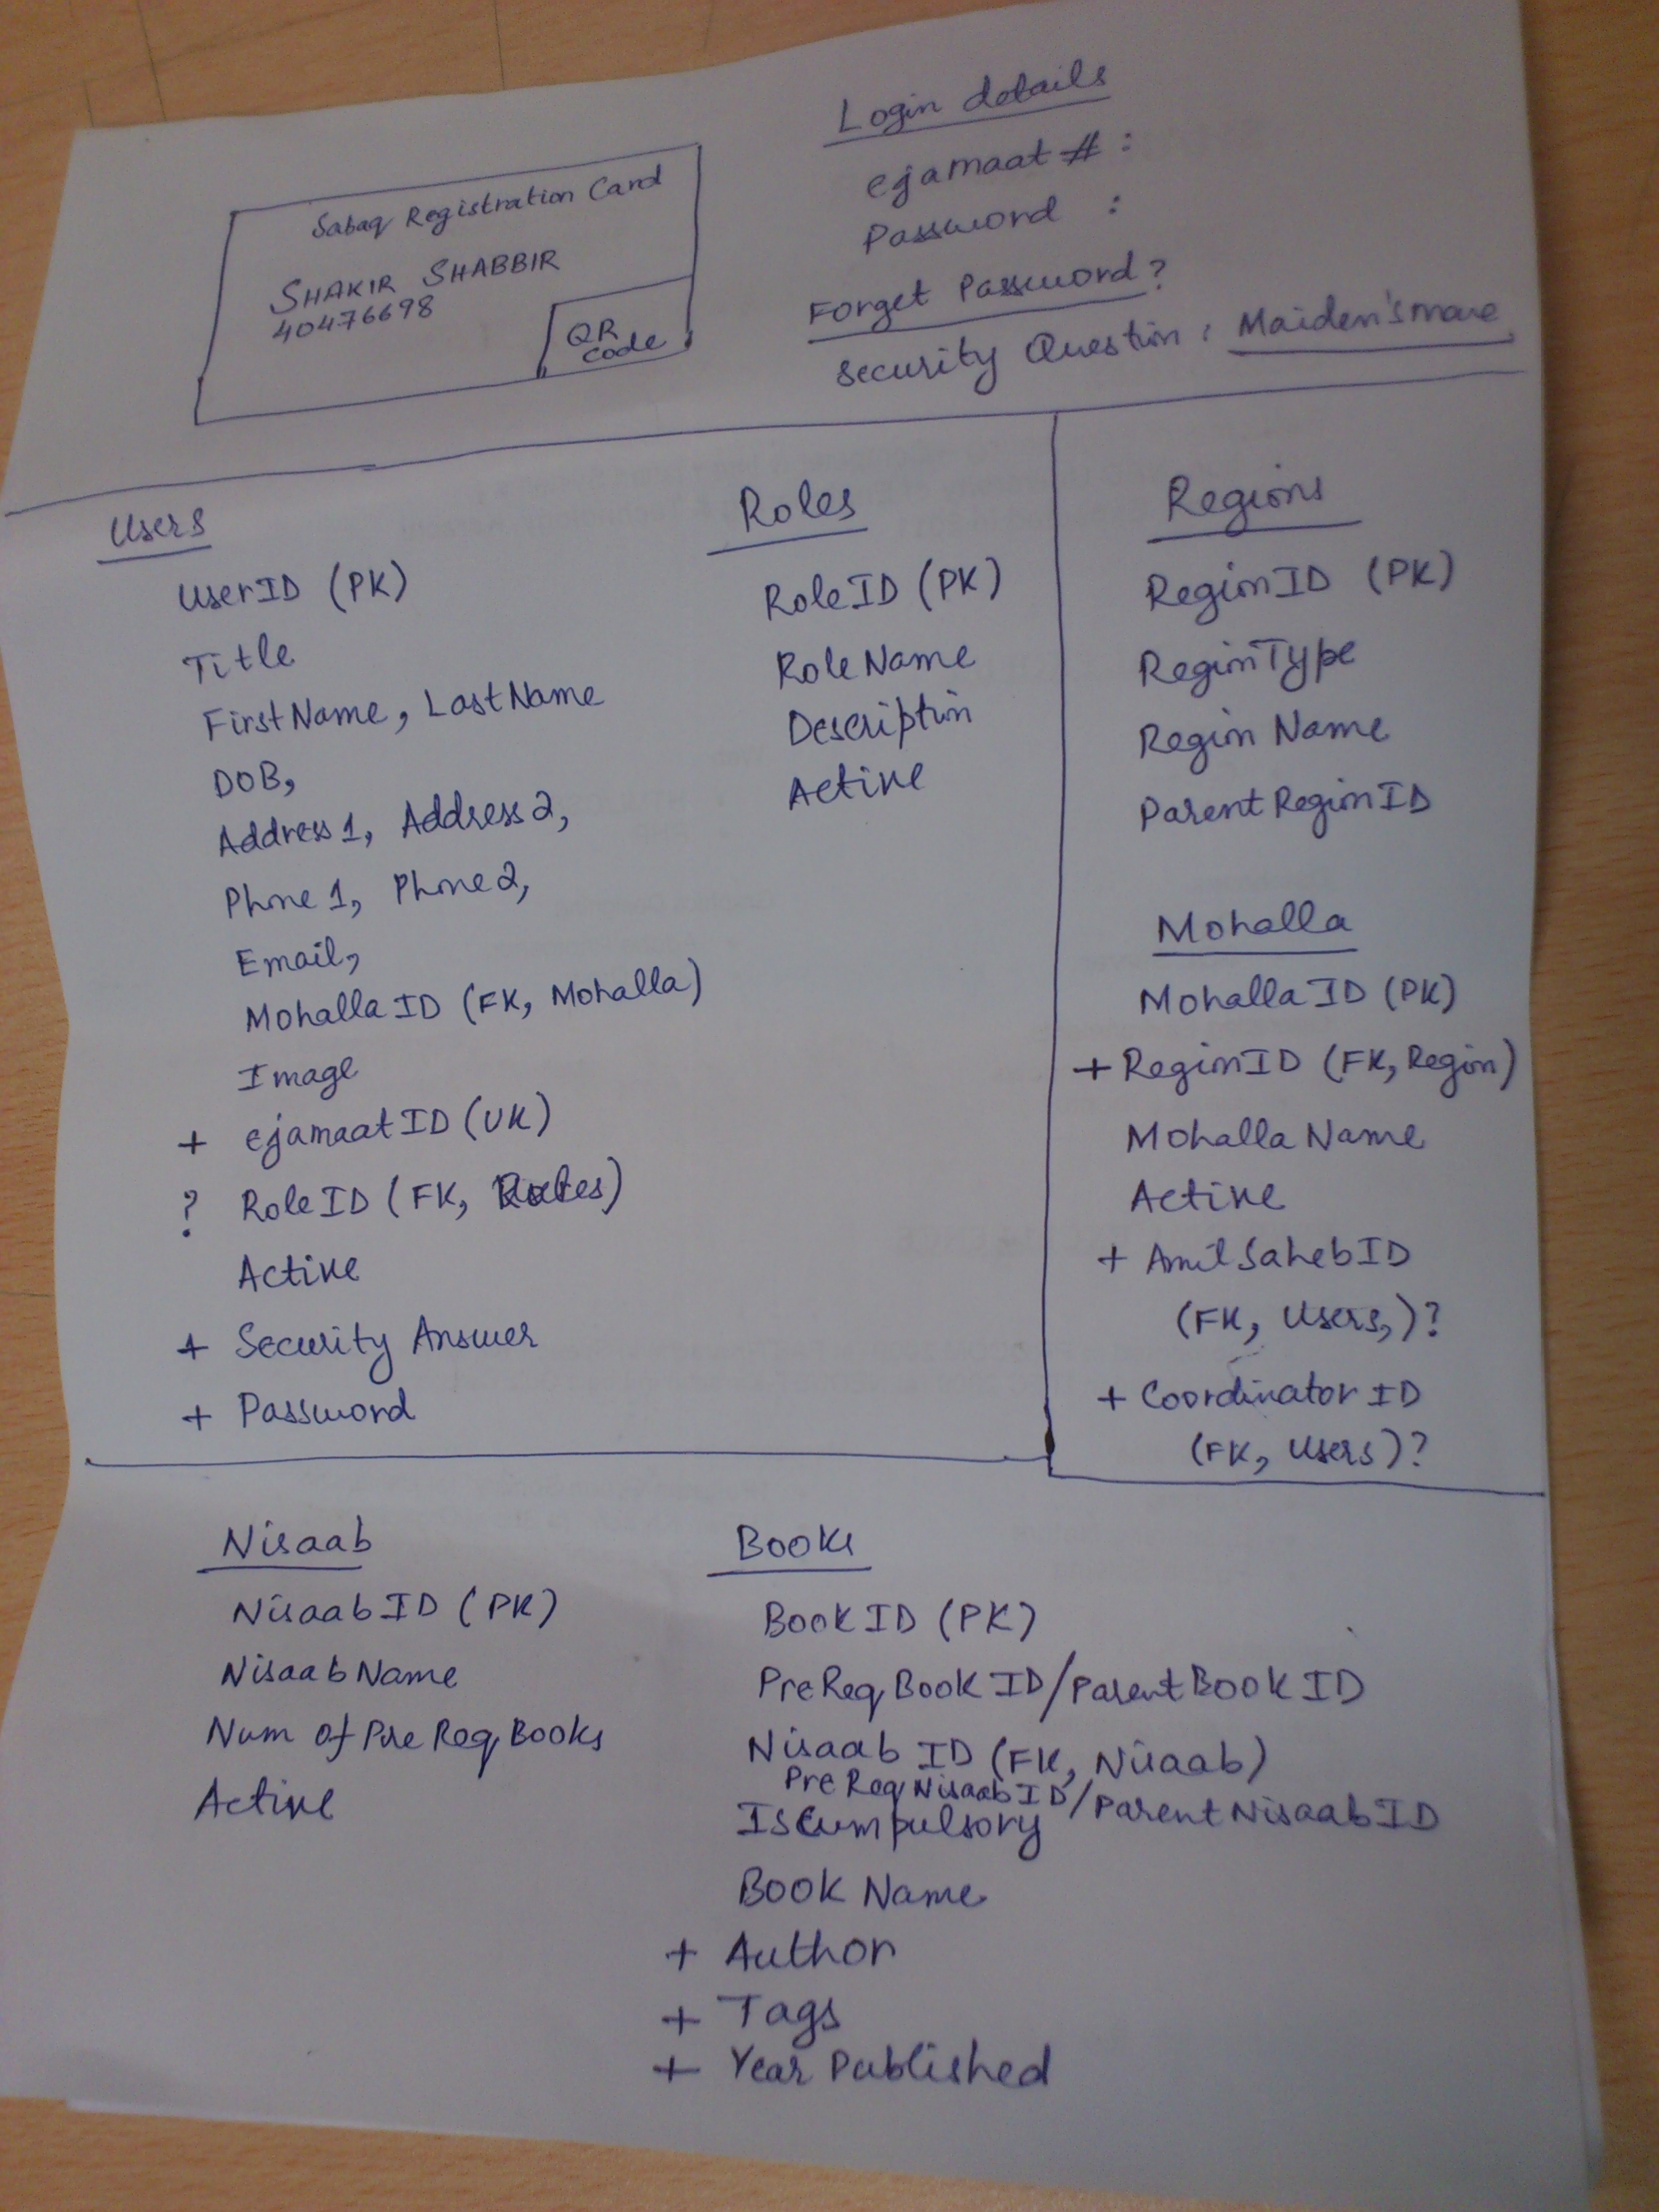 Sabaq Registration Card
SHAKIR SHABBIR
40476698
QR
code
Login details
ejamaat # :
Password :
Forget Password?
Security Question :
Users
UserID (PK)
Title
FirstName, LastName
DOB,
Address1, Address2,
Phone1, Phone2,
Email,
MohallaID (FK, Mohalla)
Image
+ ejamaatID (UK)
? RoleID (FK, Roles)
Active
+ Security Answer
+ Password
Roles
RoleID (PK)
RoleName
Description
Active
Regions
RegionID (PK)
RegionType
Region Name
ParentRegionID
Mohalla
MohallaID (PK)
+ RegionID (FK, Region)
Mohalla Name
Active
+ AmilSahebID
(FK, Users,)?
+ Coordinator ID
(FK, Users)?
Nisaab
NisaabID (PK)
NisaabName
Num of Pre Req Books
Active
Books
BookID (PK)
PreReqBookID/ParentBookID
Nisaab ID (FK, Nisaab)
PreReqNisaabID/ParentNisaabID
IsCumpulsory
Book Name
+ Author
+ Tags
+ Year Published